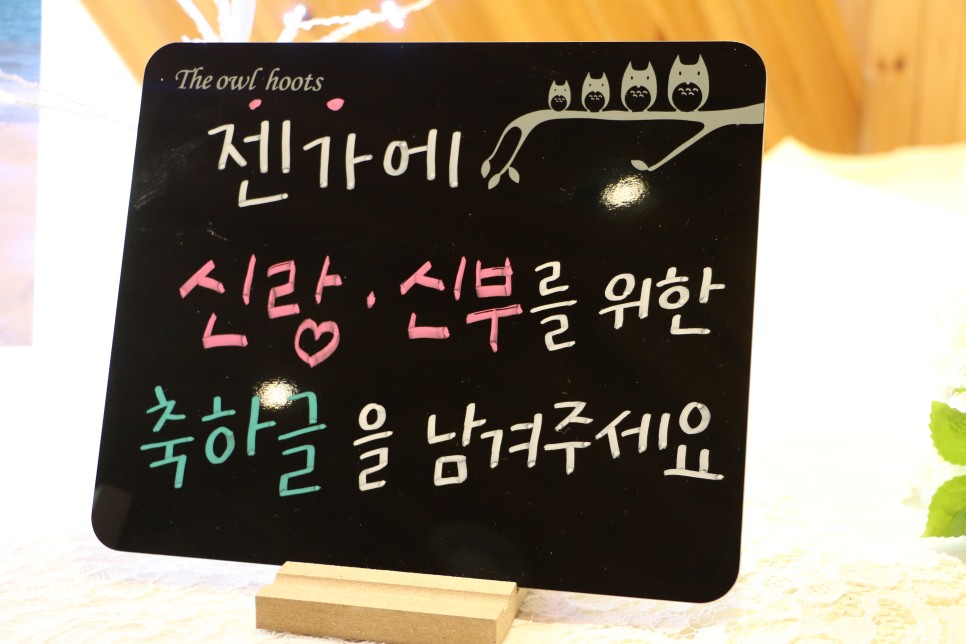 The owl hoots
젠가에
신랑·신부를 위한
축하글을 남겨주세요